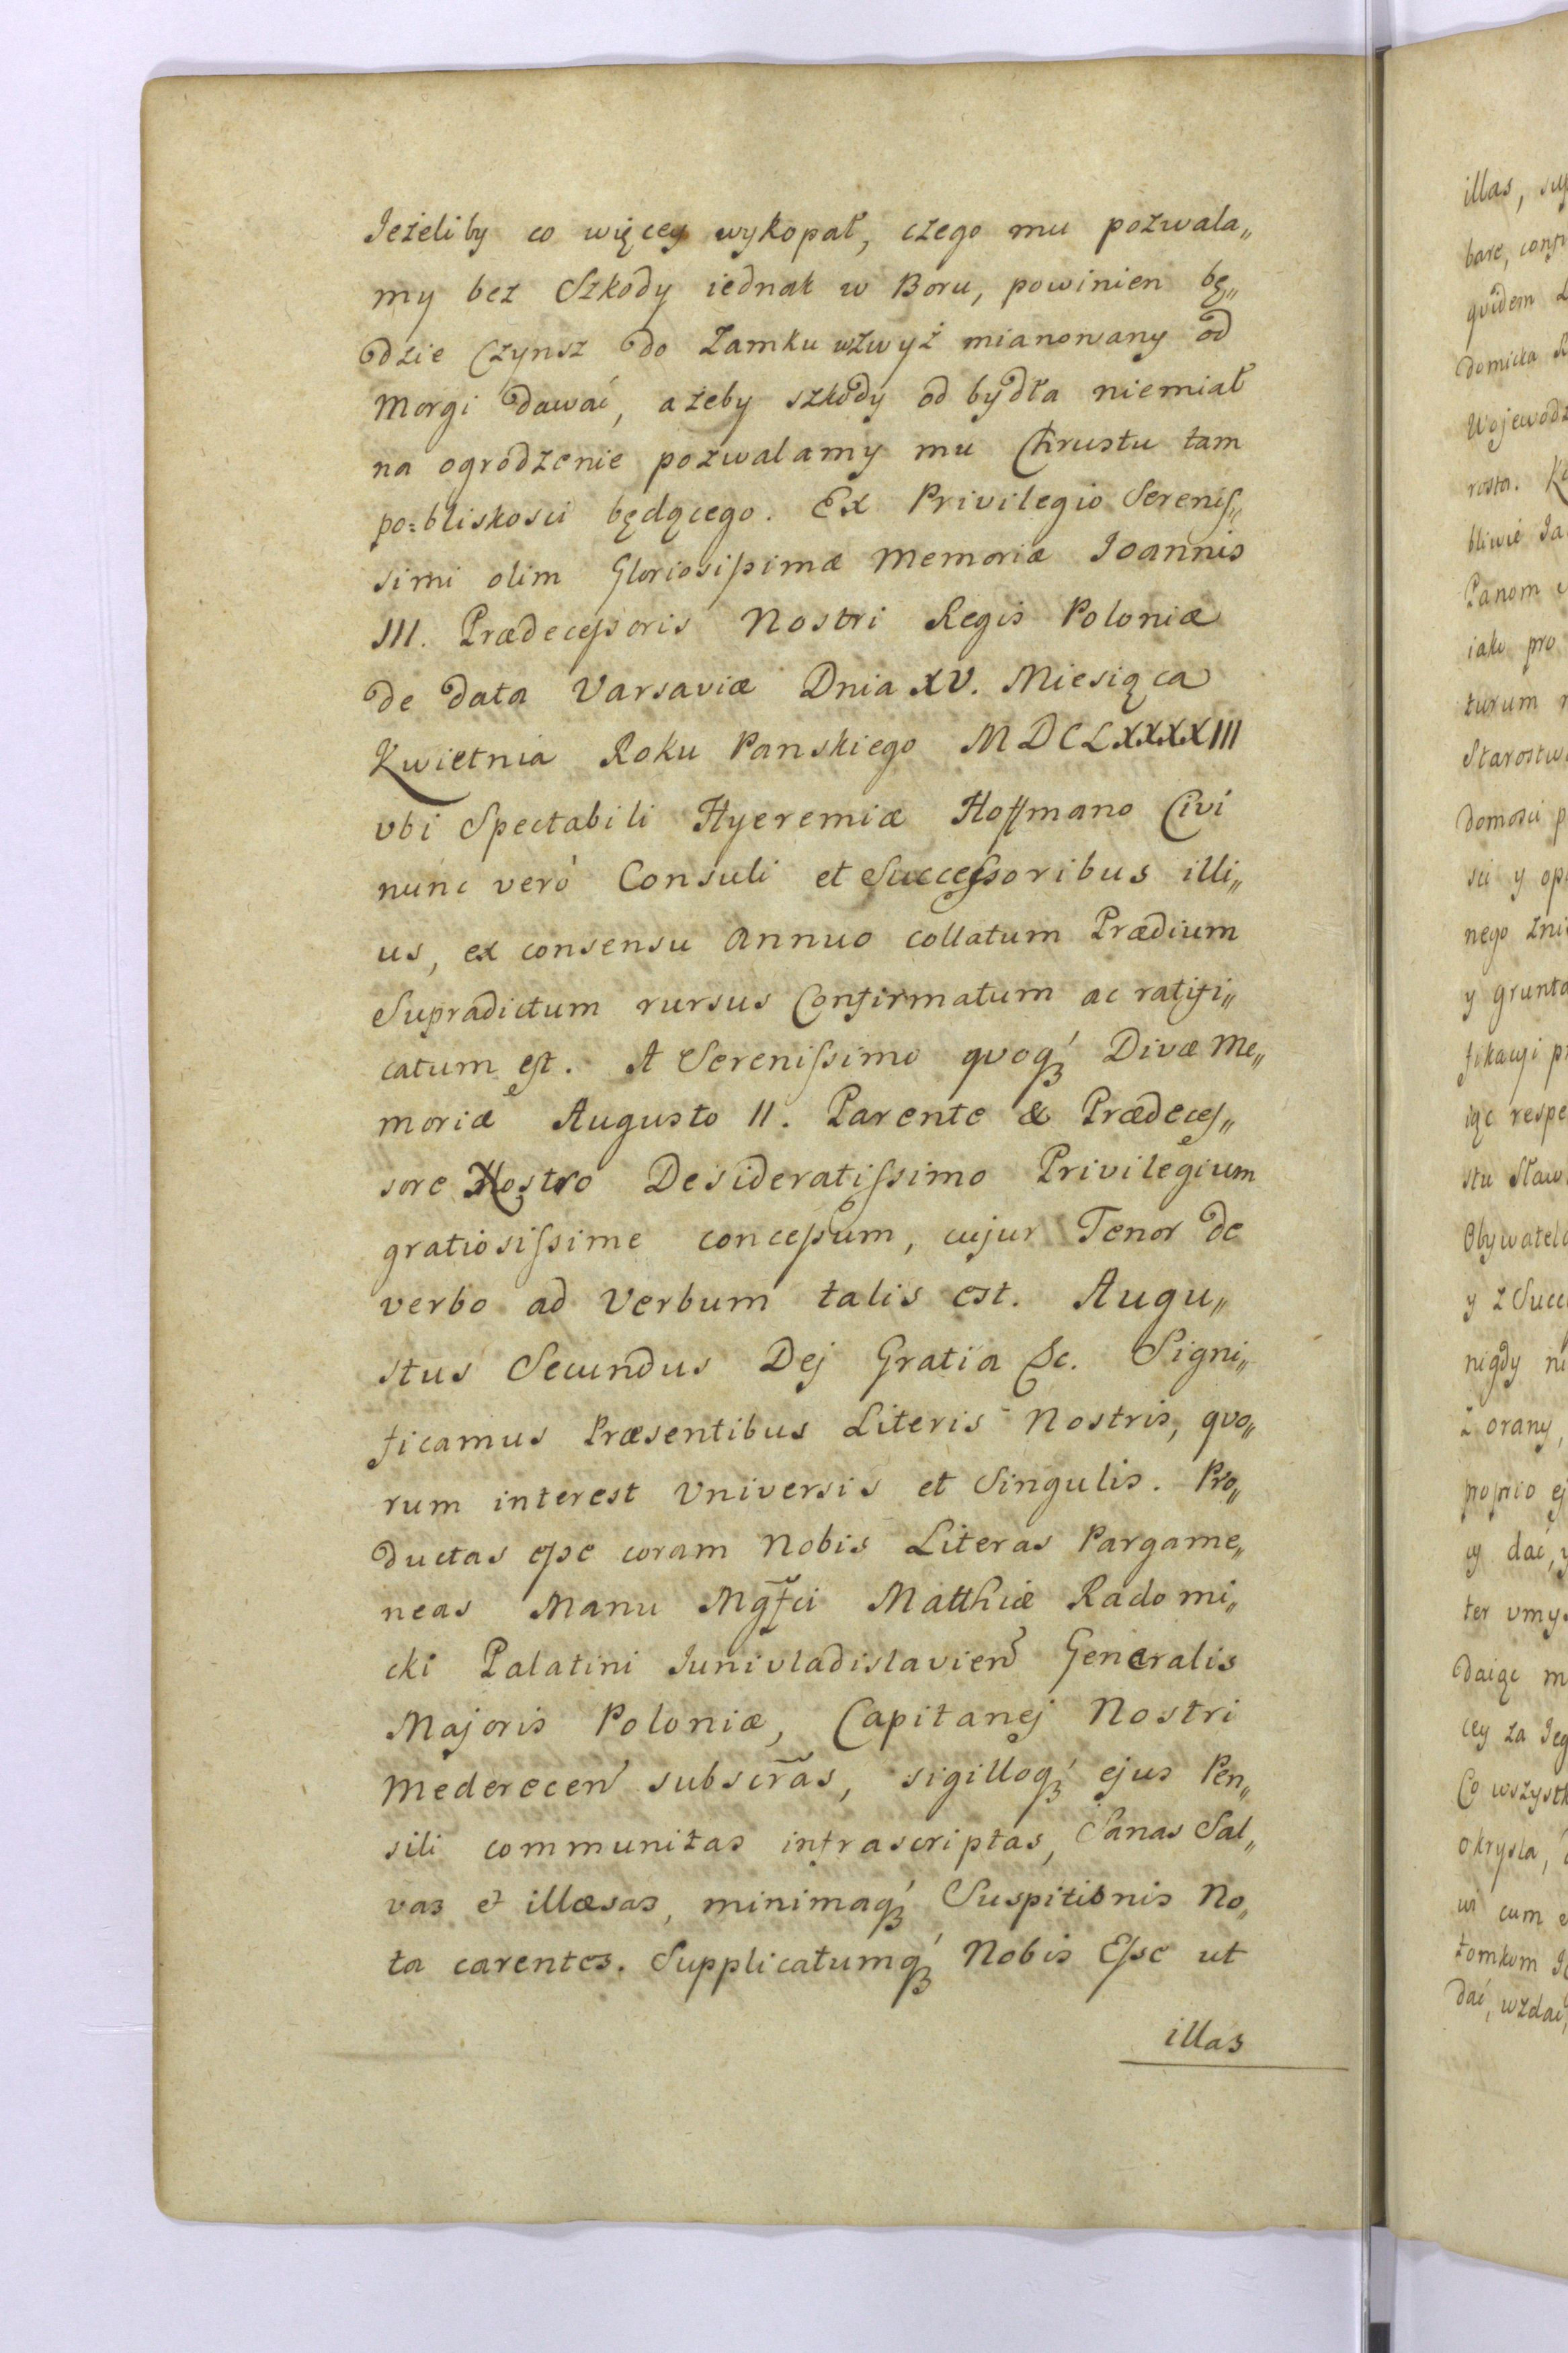 Jeżeliby co więcey wykopał, czego mu pozwala„
my bez Szkody iednak w Boru, powinien bę„
dzie Czynsz do Zamku wzwyż mianowany od
Morgi dawać, ażeby szkody od bydła niemiał
na ogrodzenie pozwalamy mu Chrustu tam
po=bliskosci będącego. Ex Privilegio Sereniſ„
simi olim Gloriosiſsimæ Memoriæ Joannis
III. Prædeceſsoris Nostri Regis Poloniæ
de data Varsaviæ Dnia XV. Miesiąca
Kwietnia Roku Panskiego MDCLXXXXIII
vbi Spectabili Hyeremiæ Hoffmano Civi
nunc verò Consuli et Succeſsoribus illi„
us, ex consensu Annuo collatum Prædium
Supradictum rursus Confirmatum ac ratifi„
catum eſt. A Sereniſsimo qvoqꝫ́ Divæ Me„
moriæ Augusto II. Parente & Prædeceſ„
sore Nostro Desideratiſsimo Privilegium
gratiosiſsime conceſsum, cujur Tenor de
verbo ad Verbum talis est. Augu„
stus Secundus Dej Gratia &c. Signi„
ficamus Præsentibus Literis Nostris, qvo„
rum interest Vniversis et Singulis. Pro„
ductas eſse coram Nobis Literas Pargame„
neas Manu Mgf̃ci Matthiæ Radomi„
cki Palatini Junivladislavien̄ Generalis
Majoris Poloniæ, Capitanej Nostri
Mederecen̄ subscr̃as, sigilloqꝫ́ ejus Pen„
sili communitas infrascriptas, Sanas Sal„
vas et illæsas, minimaqꝫ́ Suspitionis No„
ta carentes. Supplicatumqꝫ́ Nobis Eſse ut
illas
illas,
bare,
qvidem
domicka
rosta.
bliwie
Panom
iako pro
turum
domosci
sci y
nego
y
respe
stu
y
nigdy
orany,
proprio
cy dać,
ter
daiąc
cey za
Co
okrysla,
cum
dać,